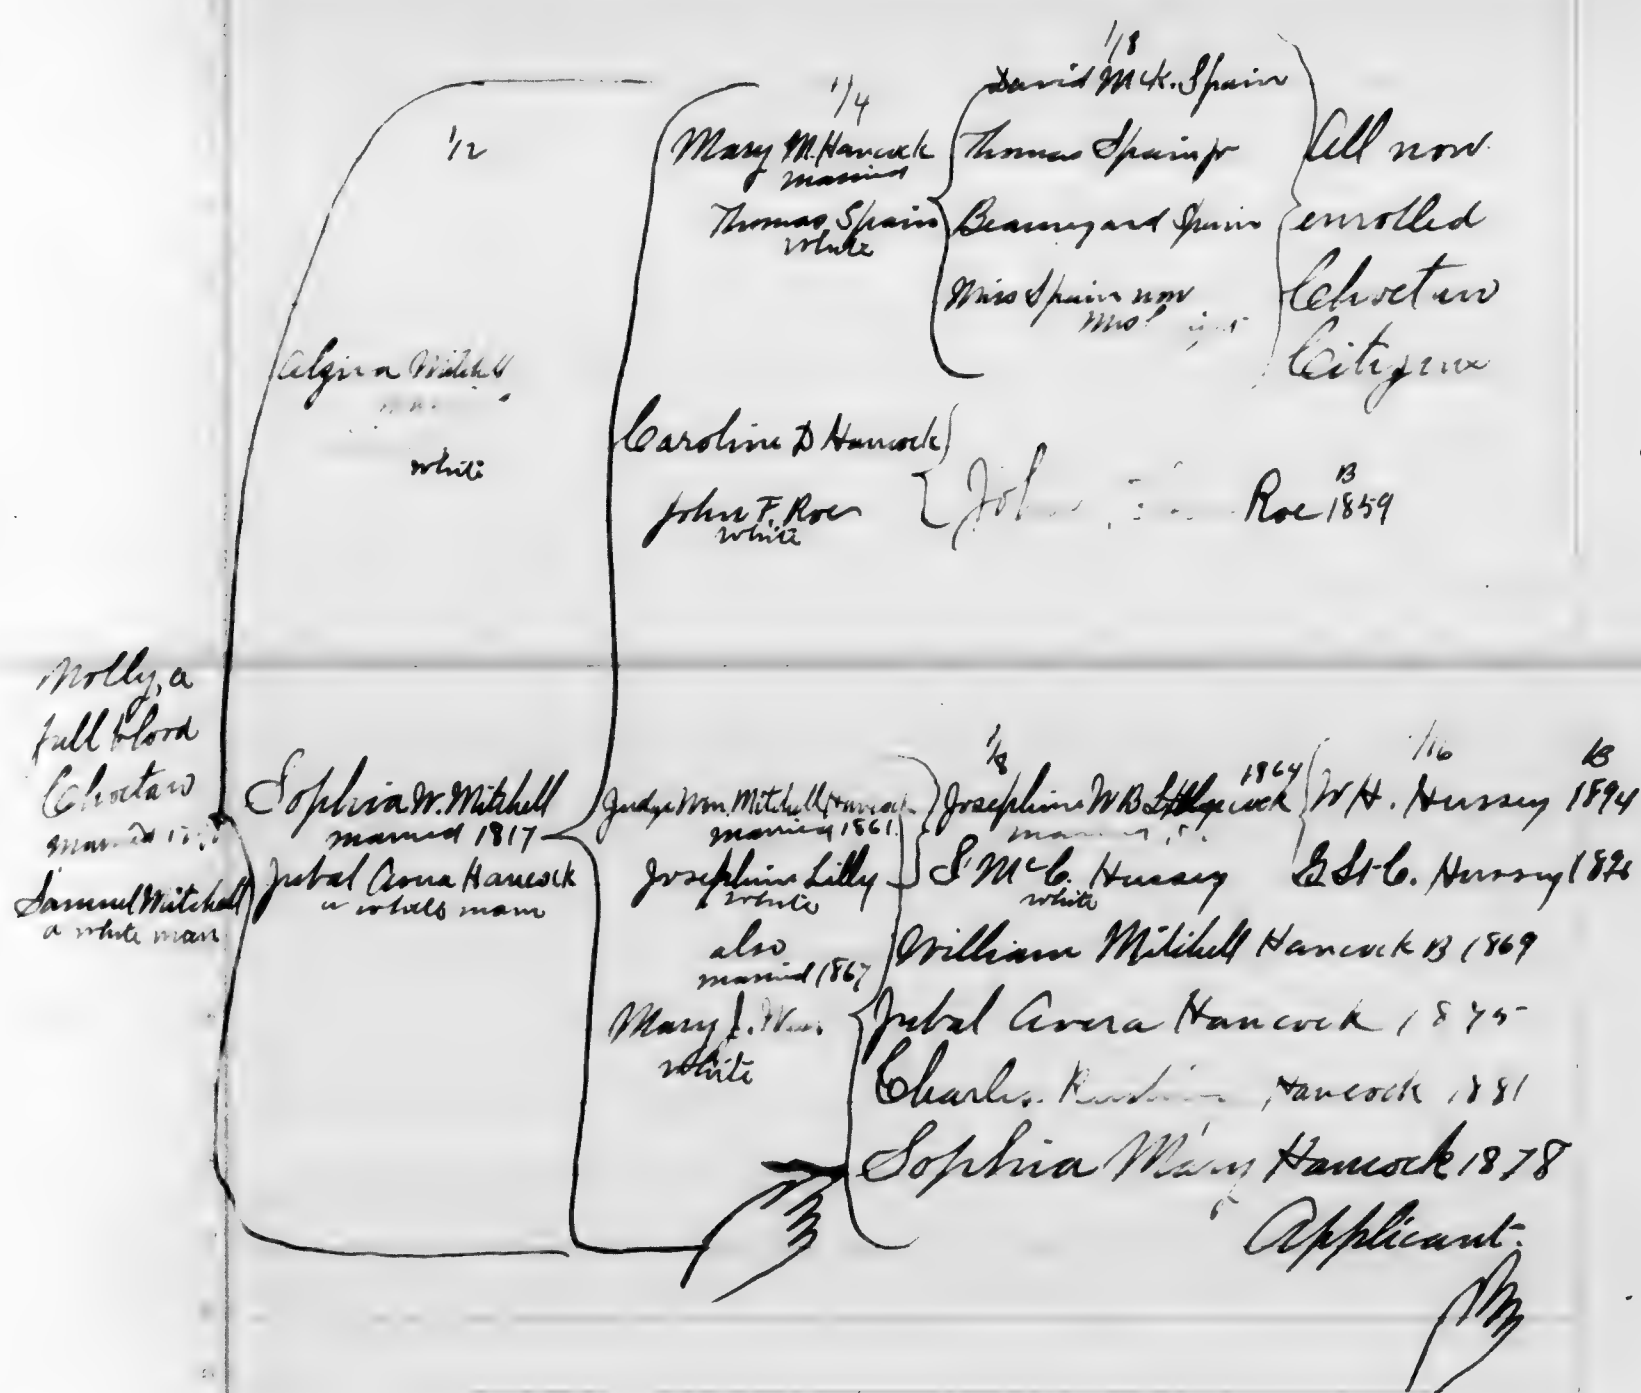 Molly, a
full blood
Choctaw
married
Samuel Mitchell
a white man
1/2
Algira Mitchell
white
Sophia W. Mitchell
married 1817
Jubal Avera Hancock
a white man
1/4
Mary M. Hancock
married
Thomas Spain
white
Caroline D Hancock
John F. Roe
white
Judge Wm. Mitchell Hancock
married 1861
Josephine Lilly
white
also
married 1867
Mary J.
white
1/8
David McK. Spain
Thomas Spain jr
Beauregard Spain
Miss Spain now
Mrs
All now
enrolled
Choctaw
Citizens
Roe B 1859
1/8
Josephine W B Hancock 1864
S McC. Hussey
white
William Mitchell Hancock B 1869
Jubal Avera Hancock 1875
Charles Hancock 1881
Sophia Mary Hancock 1878
Applicant.
1/16 B
W H. Hussey 1894
G St C. Hussey 1896